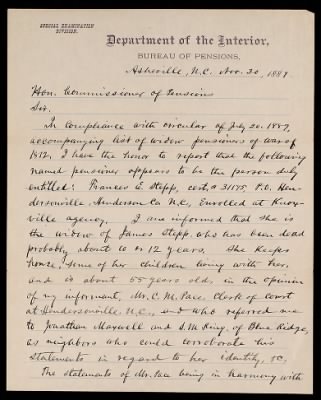 SPECIAL EXAMINATION
DIVISION.
Department of the Interior,
BUREAU OF PENSIONS,
Asheville, N.C. Nov. 30, 1887
Hon. Commissioner of Pensions
Sir.
In compliance with circular of July 20. 1887,
accompanying list of widow pensioners of War of
1812, I have the honor to report that the following
named pensioner appears to be the person duly
entitled: Frances E. Stepp, cert. # 31175, P.O. Hen-
dersonville, Henderson Co. N.C., Enrolled at Knox-
ville agency. I am informed that she is
the widow of James Stepp, who has been dead
probably about 10 or 12 years. She keeps
house, some of her children living with her,
and is about 55 years old, in the opinion
of my informant, Mr. C. M. Pace, Clerk of Court
at Hendersonville, N.C., and who referred me
to Jonathan Maxwell and S. M. King, of Blue Ridge,
as neighbors who could corroborate his
statements in regard to her identity, &c.
The statements of Mr. Pace being in harmony with